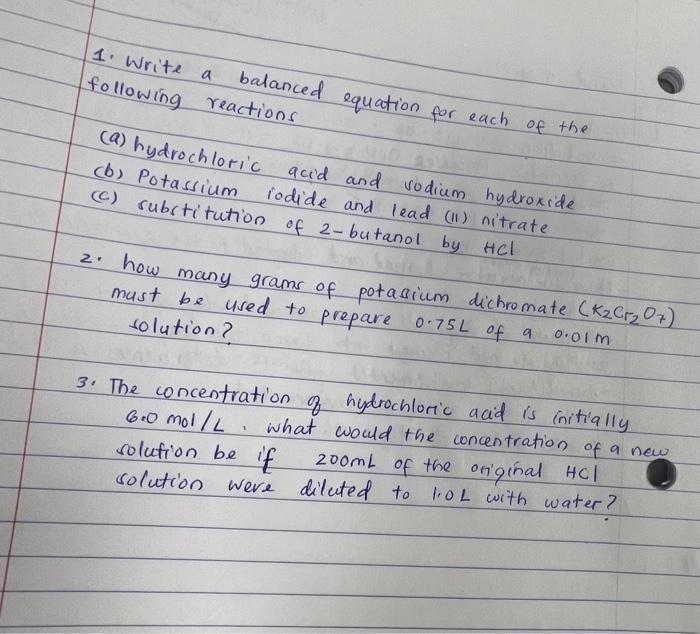 1. Write a balanced equation for each of the
following reactions
(a) hydrochloric acid and sodium hydroxide
(b) Potassium iodide and lead (II) nitrate
(c) substitution of 2-butanol by HCl
2. how many grams of potassium dichromate (K2Cr2O7)
must be used to prepare 0.75L of a 0.01m
solution?
3. The concentration of hydrochloric acid is initially
6.0 mol/L. what would the concentration of a new
solution be if 200mL of the original HCl
solution were diluted to 1.0L with water?